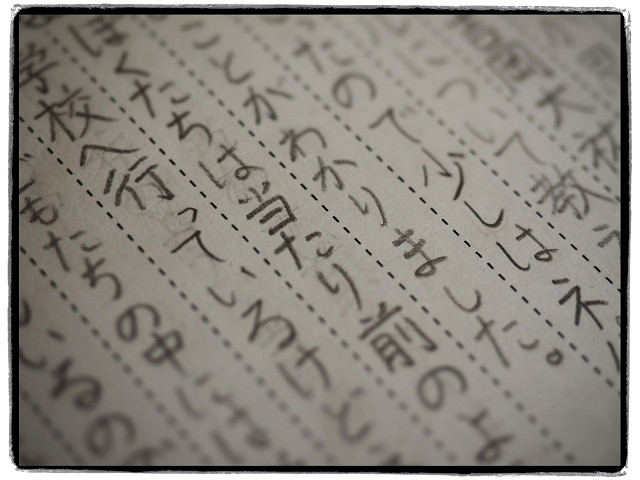 について教
たので少しは
ことがわかりました。
ぼくたちは当たり前のよ
学校へ行っているけど
どもたちの中には
いるの